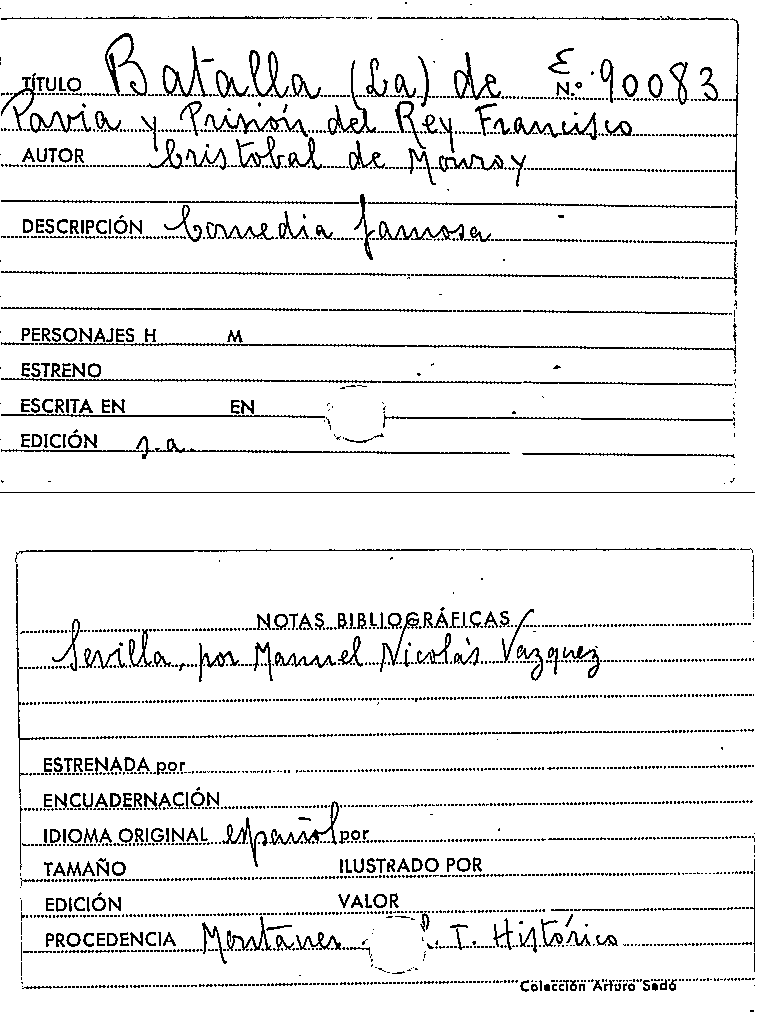 TÍTULO Batalla (La) de E N.º 90083
Pavia y Prisión del Rey Francisco
AUTOR Cristobal de Monroy
DESCRIPCIÓN Comedia famosa
PERSONAJES H M
ESTRENO
ESCRITA EN EN
EDICIÓN s.a.
NOTAS BIBLIOGRÁFICAS
Sevilla, por Manuel Nicolás Vazquez
ESTRENADA por
ENCUADERNACIÓN
IDIOMA ORIGINAL español por
TAMAÑO ILUSTRADO POR
EDICIÓN VALOR
PROCEDENCIA Montaner. T. Histórico
Colección Arturo Sedó